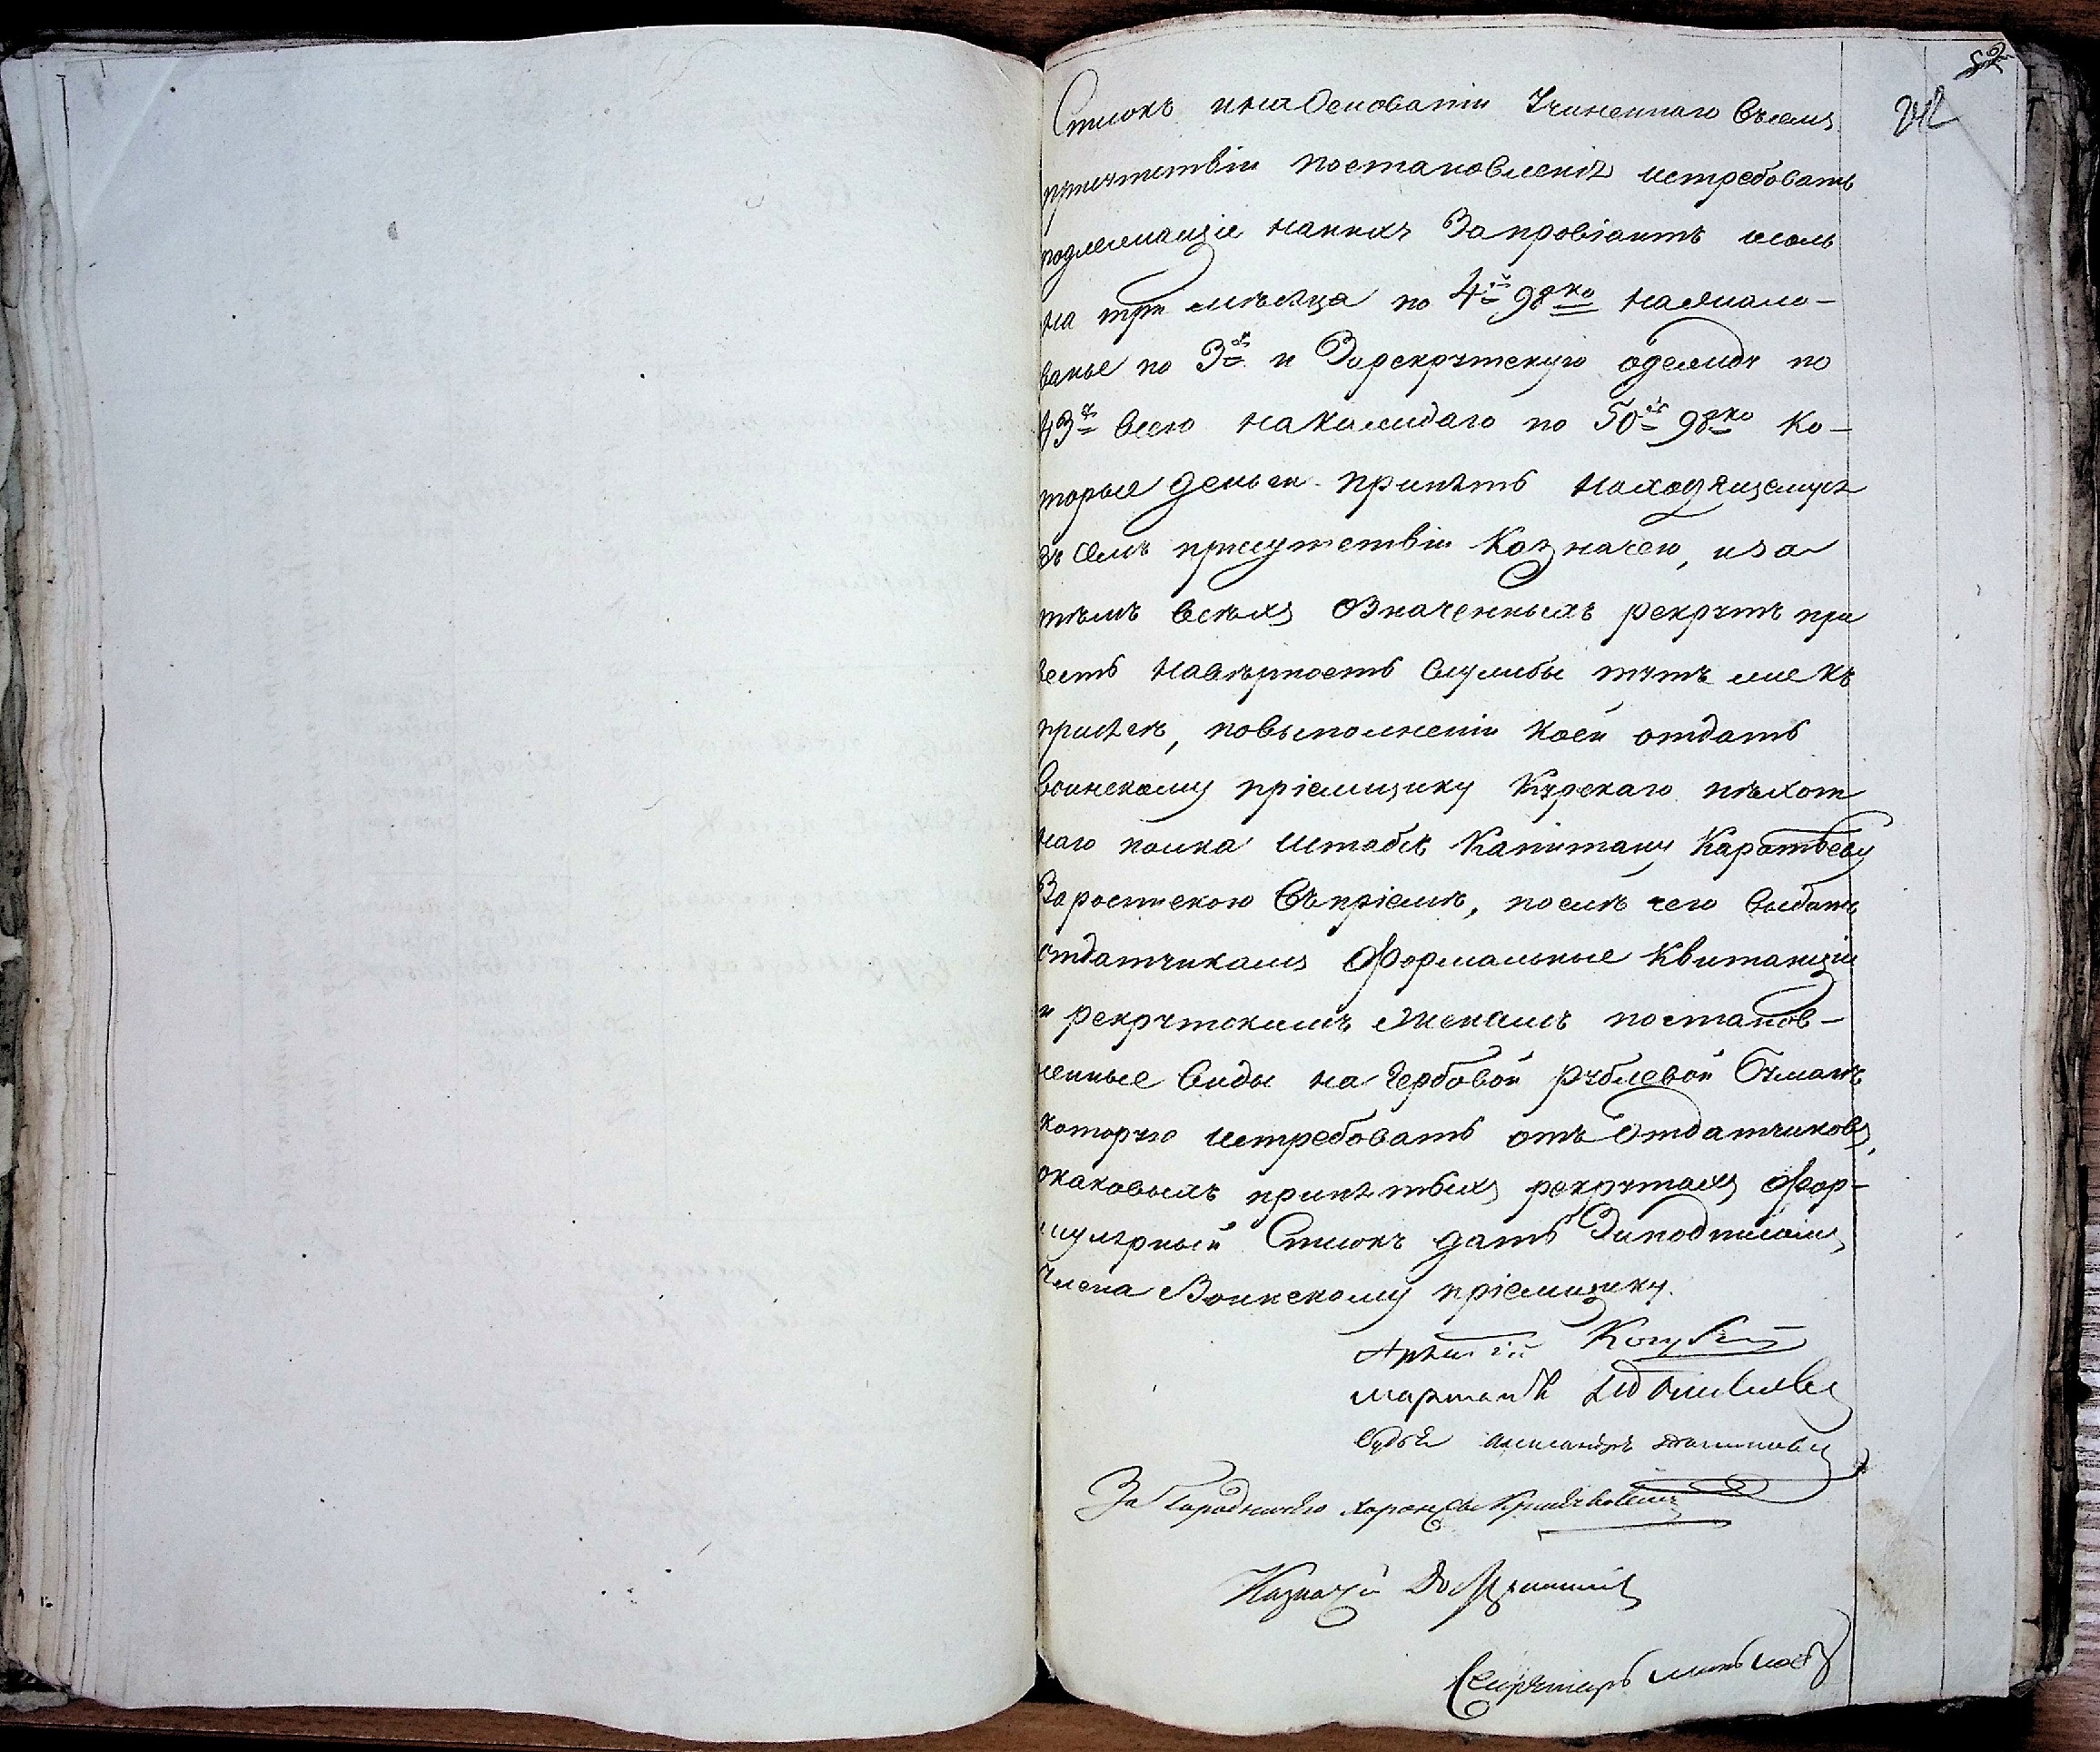 52
242
Списокъ и на основаніи учиненнаго въ семъ
присутствіи постановленія истребовать
подлежащіе на нихъ за провіантъ и соль
на три мѣсяца по 4 98 ко на жало-
ванье по 3 и за рекрутскую одежду по
43 всего на каждаго по 50 98 ко ко-
торые деньги принять находящемуся
въ семъ присутствіи казначею, и за
тѣмъ всѣхъ означенныхъ рекрутъ при
весть на вѣрность службы тутъ же къ
присягѣ, по выполненіи коей отдать
воинскому пріемщику Курскаго пѣхот
наго полка штабсъ капитану Каратѣеву
за роспискою въ пріемѣ, послѣ чего выдать
отдатчикамъ формальные квитанціи
и рекрутскимъ женкамъ постанов-
ленные виды на гербовой рублевой бумагѣ
которую истребовать отъ отдатчиковъ,
о каковыхъ принятыхъ рекрутахъ фор-
мулярный списокъ дать за подписомъ
члена воинскому пріемщику.
Судья Александръ
За городничаго хорунжій
Казначей
Секретарь